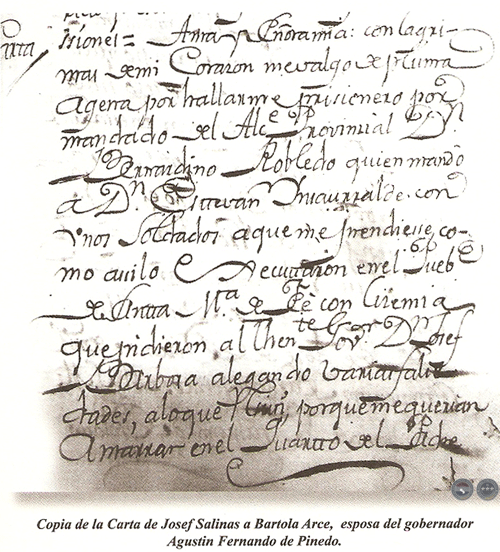 Ama y Señora mia: con lagri-
mas de mi Corazon me valgo de pluma
agena por hallarme prisionero por
mandado del Alc.e Provinial D.n
Bernardino Robledo quien mando
a D.n Estevan Ynsaurralde con
unos Soldados a que me prendiesse, co-
mo assilo executaron en el Pueb.o
de Santa M.a de Fè con licencia
que pidieron al Then.te Gov.or D.n Josef
Barbosa alegando varias falce-
dades, a lo que porque me querian
Amarrar en el Quarto del Padre
Copia de la Carta de Josef Salinas a Bartola Arce, esposa del gobernador
Agustin Fernando de Pinedo.